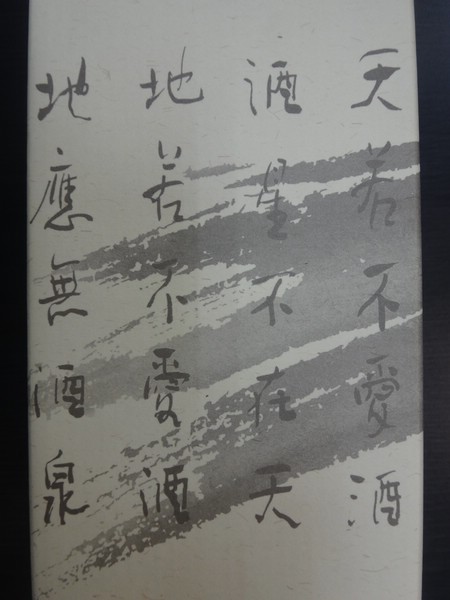 天若不愛酒
酒星不在天
地若不愛酒
地應無酒泉